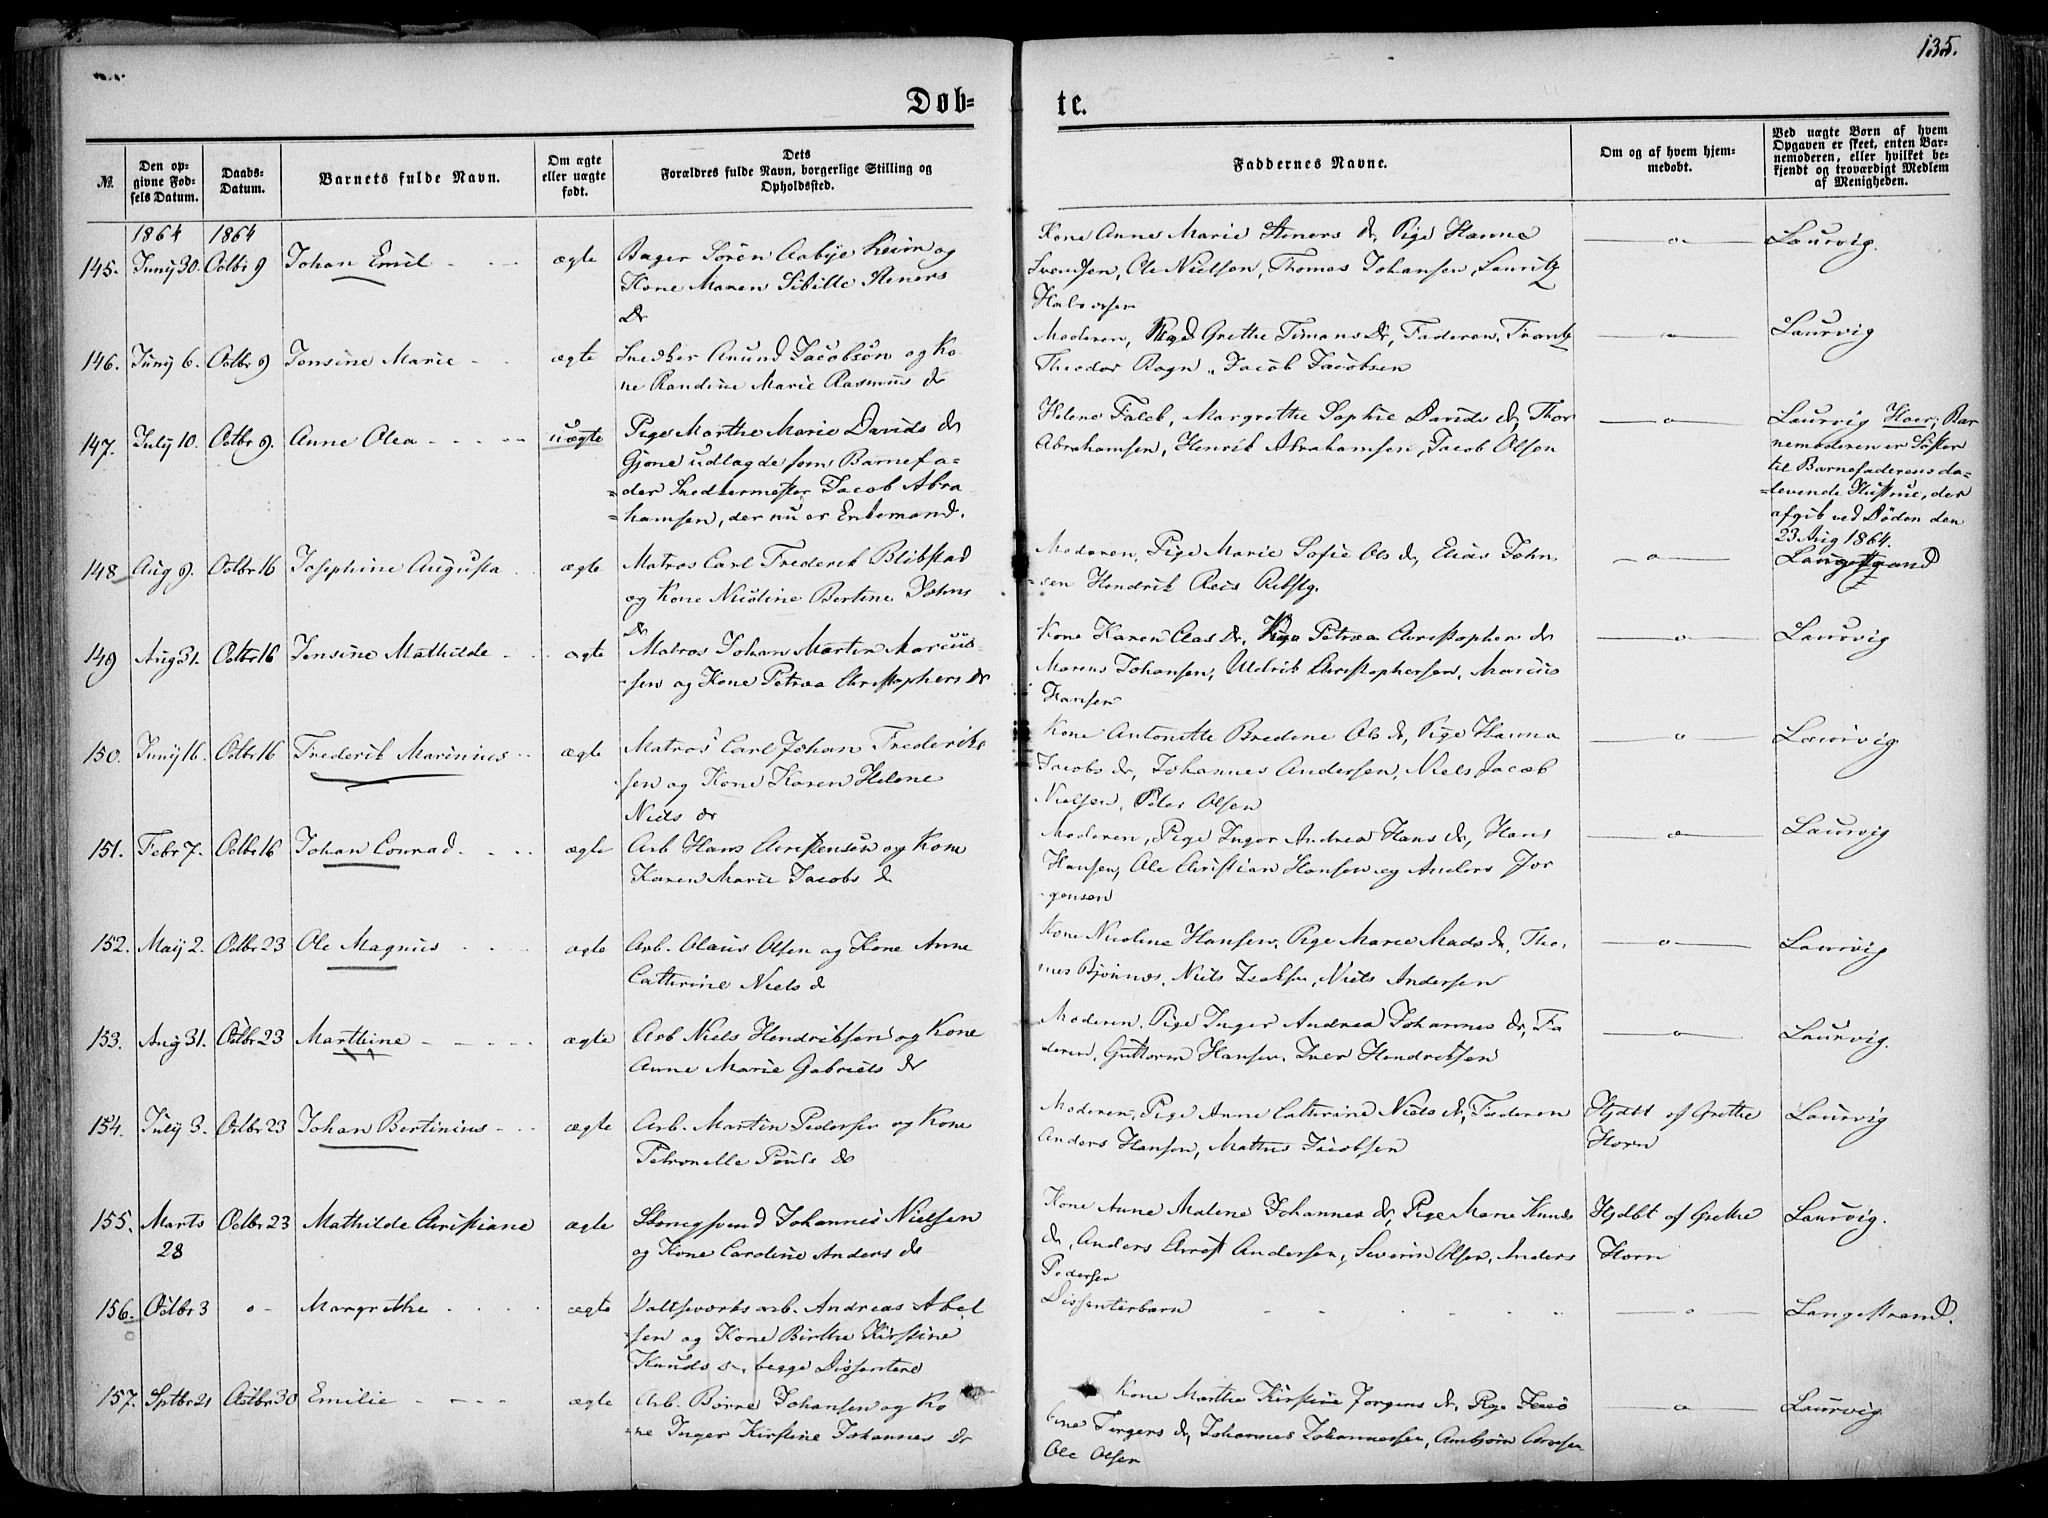 135.
Døb-
te.
№.
Den op-
givne Fød-
sels Datum.
Daabs-
Datum.
Barnets fulde Navn.
Om ægte
eller uægte
født.
Dets
Forældres fulde Navn, borgerlige Stilling og
Opholdssted.
Faddernes Navne.
Om og af hvem hjem-
medøbt.
Ved uægte Børn af hvem
Opgaven er skeet, enten Bar-
nemoderen, eller hvilket be-
kjendt og troværdigt Medlem
af Menigheden.
1864 1864
145. Junij 30. Octbr 9 Johan Emil - - - ægte
Bager Sören Aabye Krøn og
Kone Maren Sibille Steners
Dr
Kone Anne Marie Steners dr, Pige Hanna
Svendsen, Ole Nielsen, Thomas Johansen, Lauritz
Halvorsen
—o— Laurvig.
146. Junij 6. Octbr 9 Jensine Marie - ægte
Snedker Anund Jacobsön og Ko
ne Randine Marie Rasmus dr
Moderen, Pige Grethe Timans Dr, Faderen, Frantz
Theodor Ragn, Jacob Jacobsen
—o— Laurvig
147. July 10. Octbr 9. Anne Olea - - - - uægte
Pige Marthe Marie Davids dr
Gjone udlagde som Barnefa-
=der Snedkermester Jacob Abra
=hamsen, der nu er Enkemand.
Helene Falck, Margrethe Sophie Davids dr, Thor
Abrahamsen, Henrik Abrahamsen, Jacob Olsen
—o— Laurvig Hoer; Bar
nemoderen er Søster
til Barnefaderens da-
levende Hustrue, der
afgik ved Døden den
23 Aug 1864.
148. Aug 9. Octbr 16 Josephine Augusta - ægte
Matros Carl Frederik Blikstad
og Kone Nicoline Bertine Johns
dr
Moderen, Pige Marie Sofie Ols dr, Elias John
=sen Hendrik Reis
—o— Langestrand
149 Aug 31. Octbr 16 Jensine Mathilde - - ægte
Matros Johan Martin Marcus-
sen og Kone Petrea Christophers dr
Kone Karen Clas dr, Pige Petrea Christopher dr
Marcus Johansen, Uldrik Christophersen, Marcus
Hansen
—o— Laurvig
150. Junij 16. Octbr 16 Frederik Marinius - - ægte
Matros Carl Johan Frederik-
sen og Kone Karen Helene
Niels dr
Kone Antonette Bredine Ols dr, Pige Hanna
Jacobs dr, Johannes Andersen, Niels Jacob
Nielsen, Peter Olsen
—o— Laurvig
151. Febr 7. Octbr 16 Johan Conrad - - - ægte
Arb Hans Christensen og Kone
Karen Marie Jacobs d
Moderen, Pige Inger Andrea Hans dr, Hans
Hansen, Ole Christian Hansen og Anders Jør
gensen
—o— Laurvig
152. Maij 2. Octbr 23 Ole Magnus - - - ægte
Arb. Olaus Olsen og Kone Anne
Cathrine Niels d
Kone Nicoline Hansen, Pige Marie Mads dr, Tho-
mes Bjönnes, Niels Isaksen, Niels Andersen
—o— Laurvig
153. Aug 31. Octbr 23 Marthine - - - - - ægte
Arb Niels Hendriksen og Kone
Anne Marie Gabriels dr
Moderen, Pige Inger Andrea Johannes dr, Fa
deren, Guttorm Hansen, Iver Hendriksen
—o— Laurvig.
154. July 3. Octbr 23 Johan Bertinius - - ægte
Arb. Martin Pedersen og Kone
Petronelle Pouls dr
Moderen, Pige Anne Cathrine Niels dr, Faderen
Anders Hansen, Mathus Jacobsen
Hjdbt af Grethe
Horn
Laurvig
155. Marts
28
Octbr 23 Mathilde Christiane ægte
Johannes Nielsen
og Kone Caroline Anders dr
Kone Anne Malene Johannes dr, Pige Marie Knuds
dr, Anders Christ Andersen, Severin Olsen, Anders
Pedersen
Hjdbt af Grethe
Horn
Laurvig.
156. Octbr 3 o - Margrethe - - - - ægte
Valtseværks arb. Andreas Abel
sen og Kone Birthe Kirstine
Knuds d, begge Dissentere
Dissenterbarn
—o— Langestrand.
157. Sptbr 21 Octbr 30 Emilie - - - - ægte
Arb. Börre Johansen og Ko
=ne Inger Kirstine Johannes dr
Kone Marthe Kirstine Jorgens dr, Pige Jaco
bine Torgers dr, Johannes Johannessen, Ambjörn
Ole Olsen
—o— Laurvig